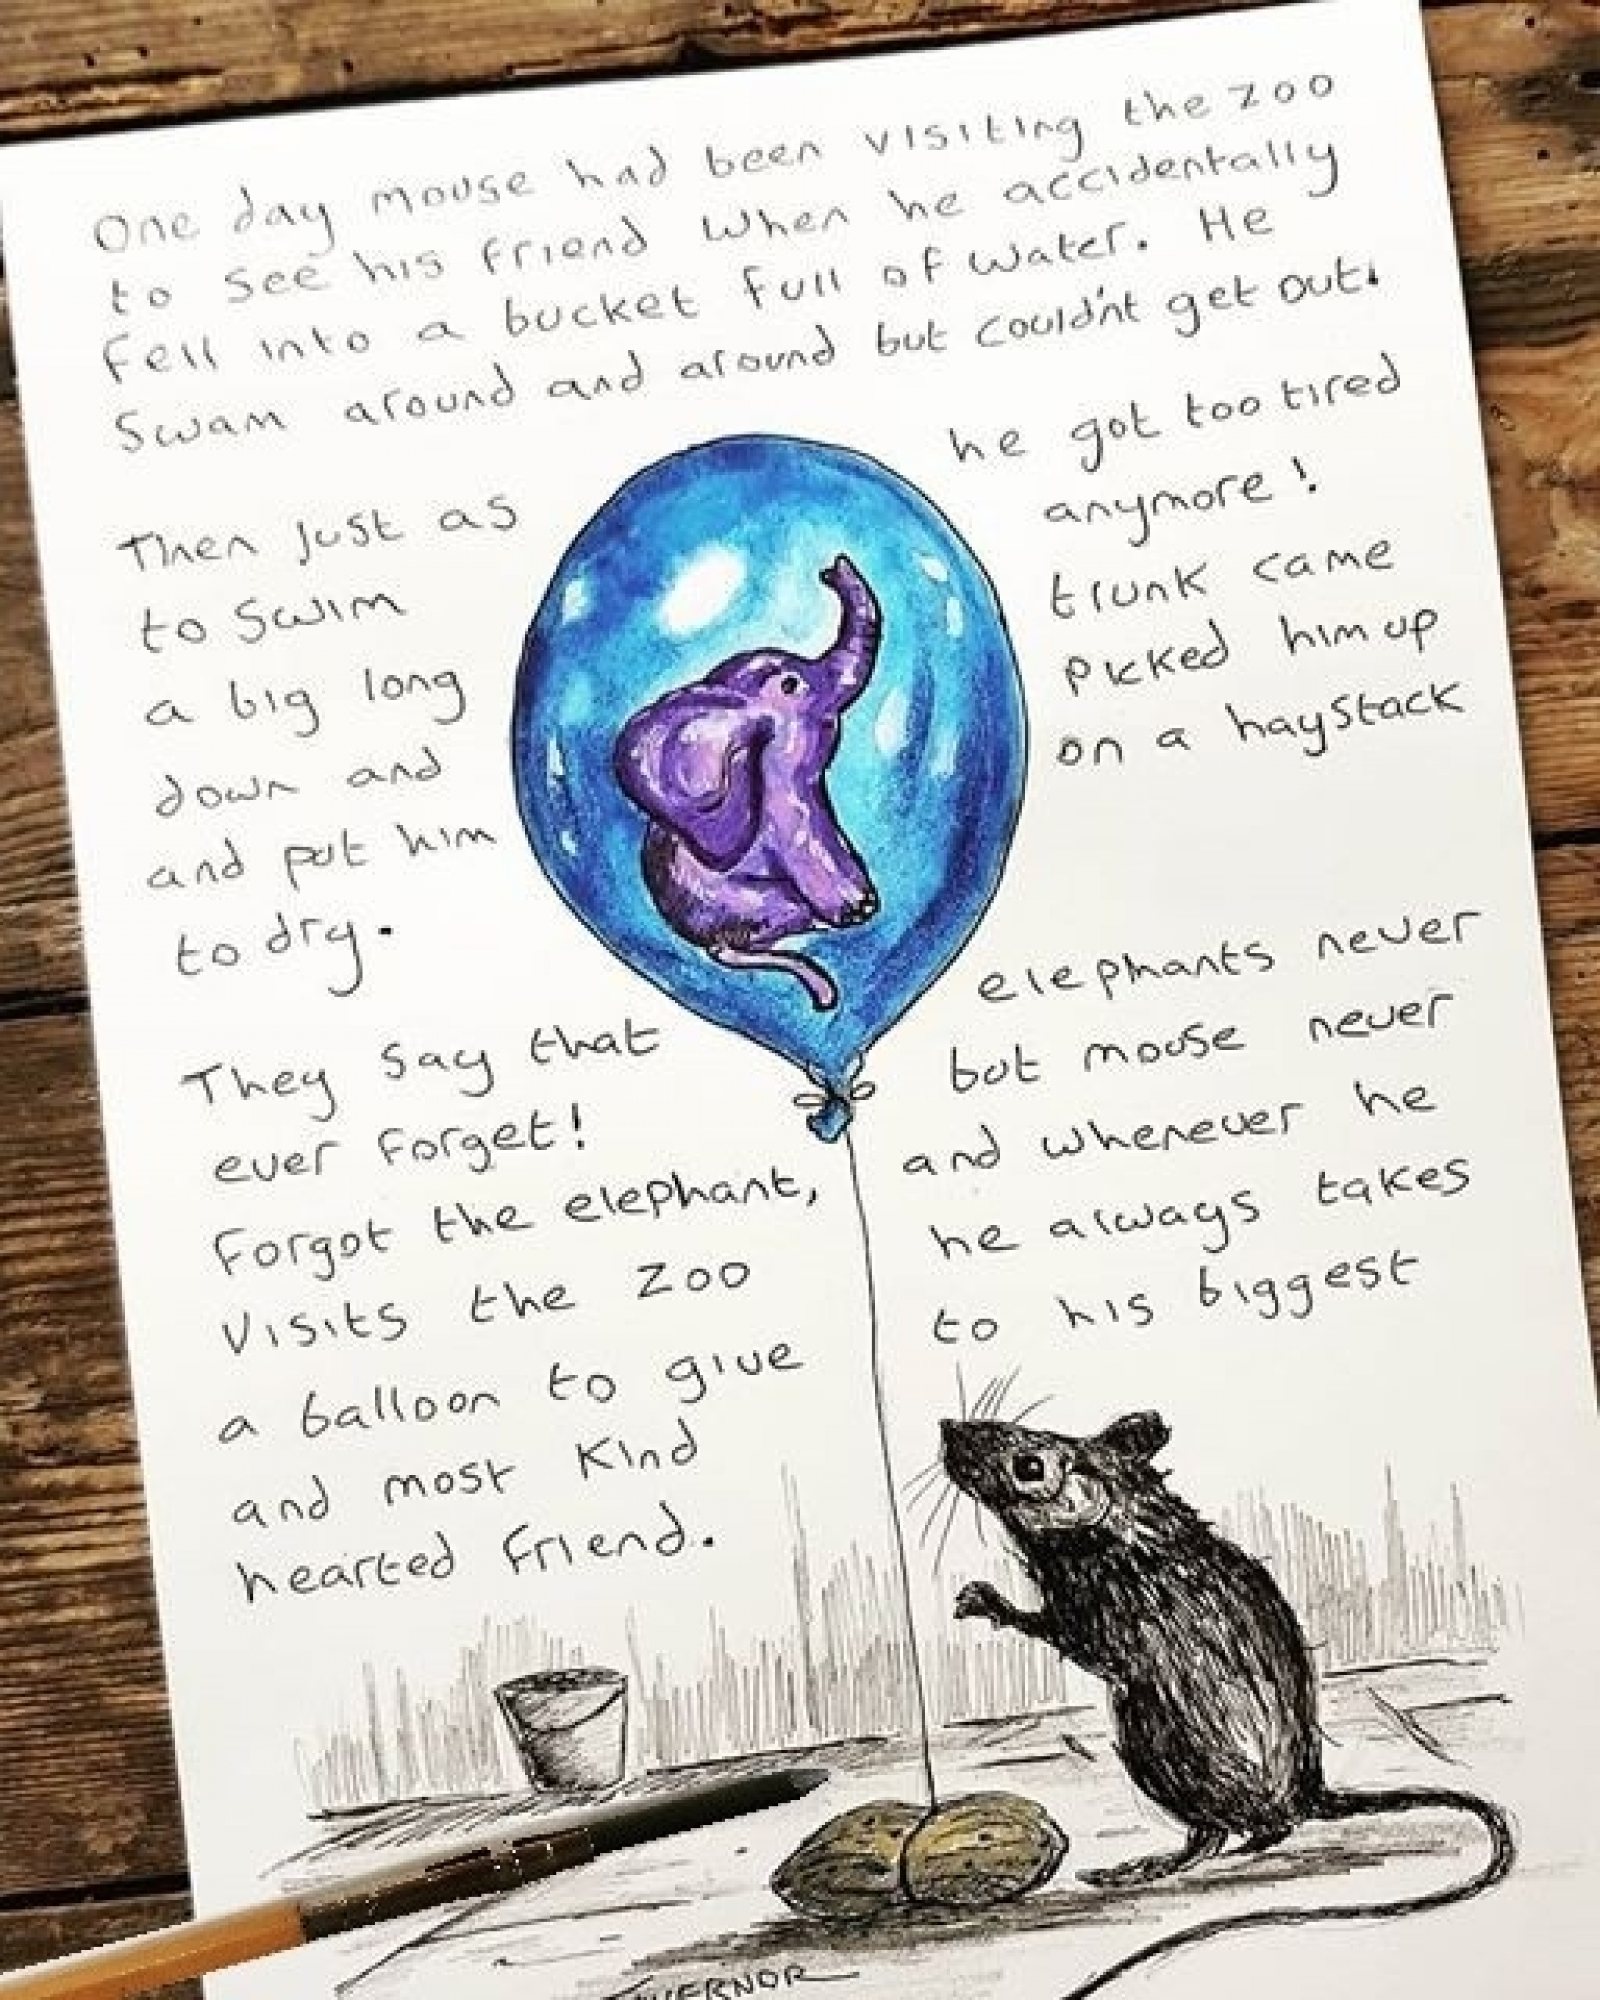 One day mouse had been visiting the zoo
to see his friend when he accidentally
fell into a bucket full of water. He
swam around and around but couldn't get out.
Then just as he got too tired
to swim anymore!
a big long trunk came
down and picked him up
and put him on a haystack
to dry.
They say that elephants never
ever forget! but mouse never
forgot the elephant, and whenever he
visits the zoo he always takes
a balloon to give to his biggest
and most kind
hearted friend.